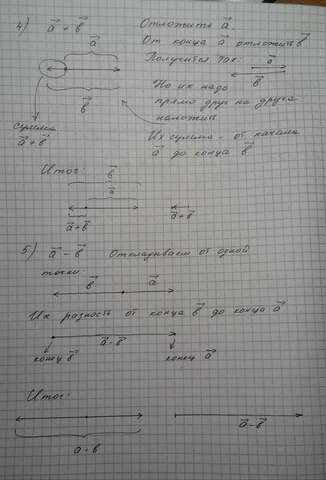 4) a⃗ + b⃗ Отложить a⃗.
От конца a⃗ отложить b⃗
a⃗
Получится так: a⃗
b⃗
Но их надо
прямо друг на друга
наложить
b⃗
Сумма
a⃗ + b⃗
Их сумма - от начала
a⃗ до конца b⃗
Итог:
b⃗
a⃗
a⃗ + b⃗ a⃗ + b⃗
5) a⃗ - b⃗ Откладываем от одной
точки.
b⃗ a⃗
Их разность от конца b⃗ до конца a⃗
a⃗ - b⃗
конец b⃗ конец a⃗
Итог:
a⃗ - b⃗
a - b